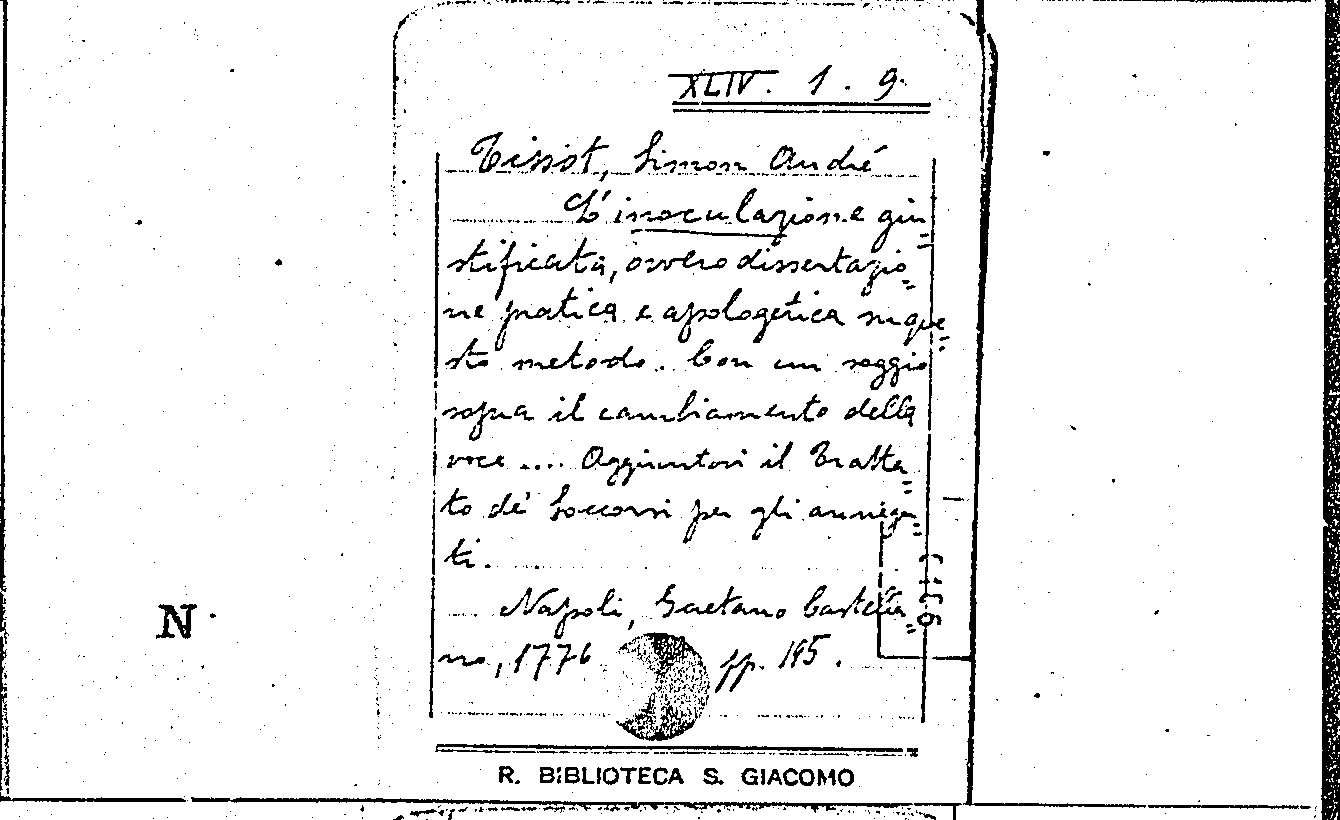 XLIV. 1. 9.
Tissot, Simon André
L'inoculazione giu=
stificata, ovvero dissertazio=
ne pratica e apologetica su que=
sto metodo. Con un saggio
sopra il cambiamento della
voce .... Aggiuntovi il Tratta=
to de' Soccorsi per gli annega=
ti.
Napoli, Gaetano Castella=
no, 1776 pp. 195.
N
R. BIBLIOTECA S. GIACOMO